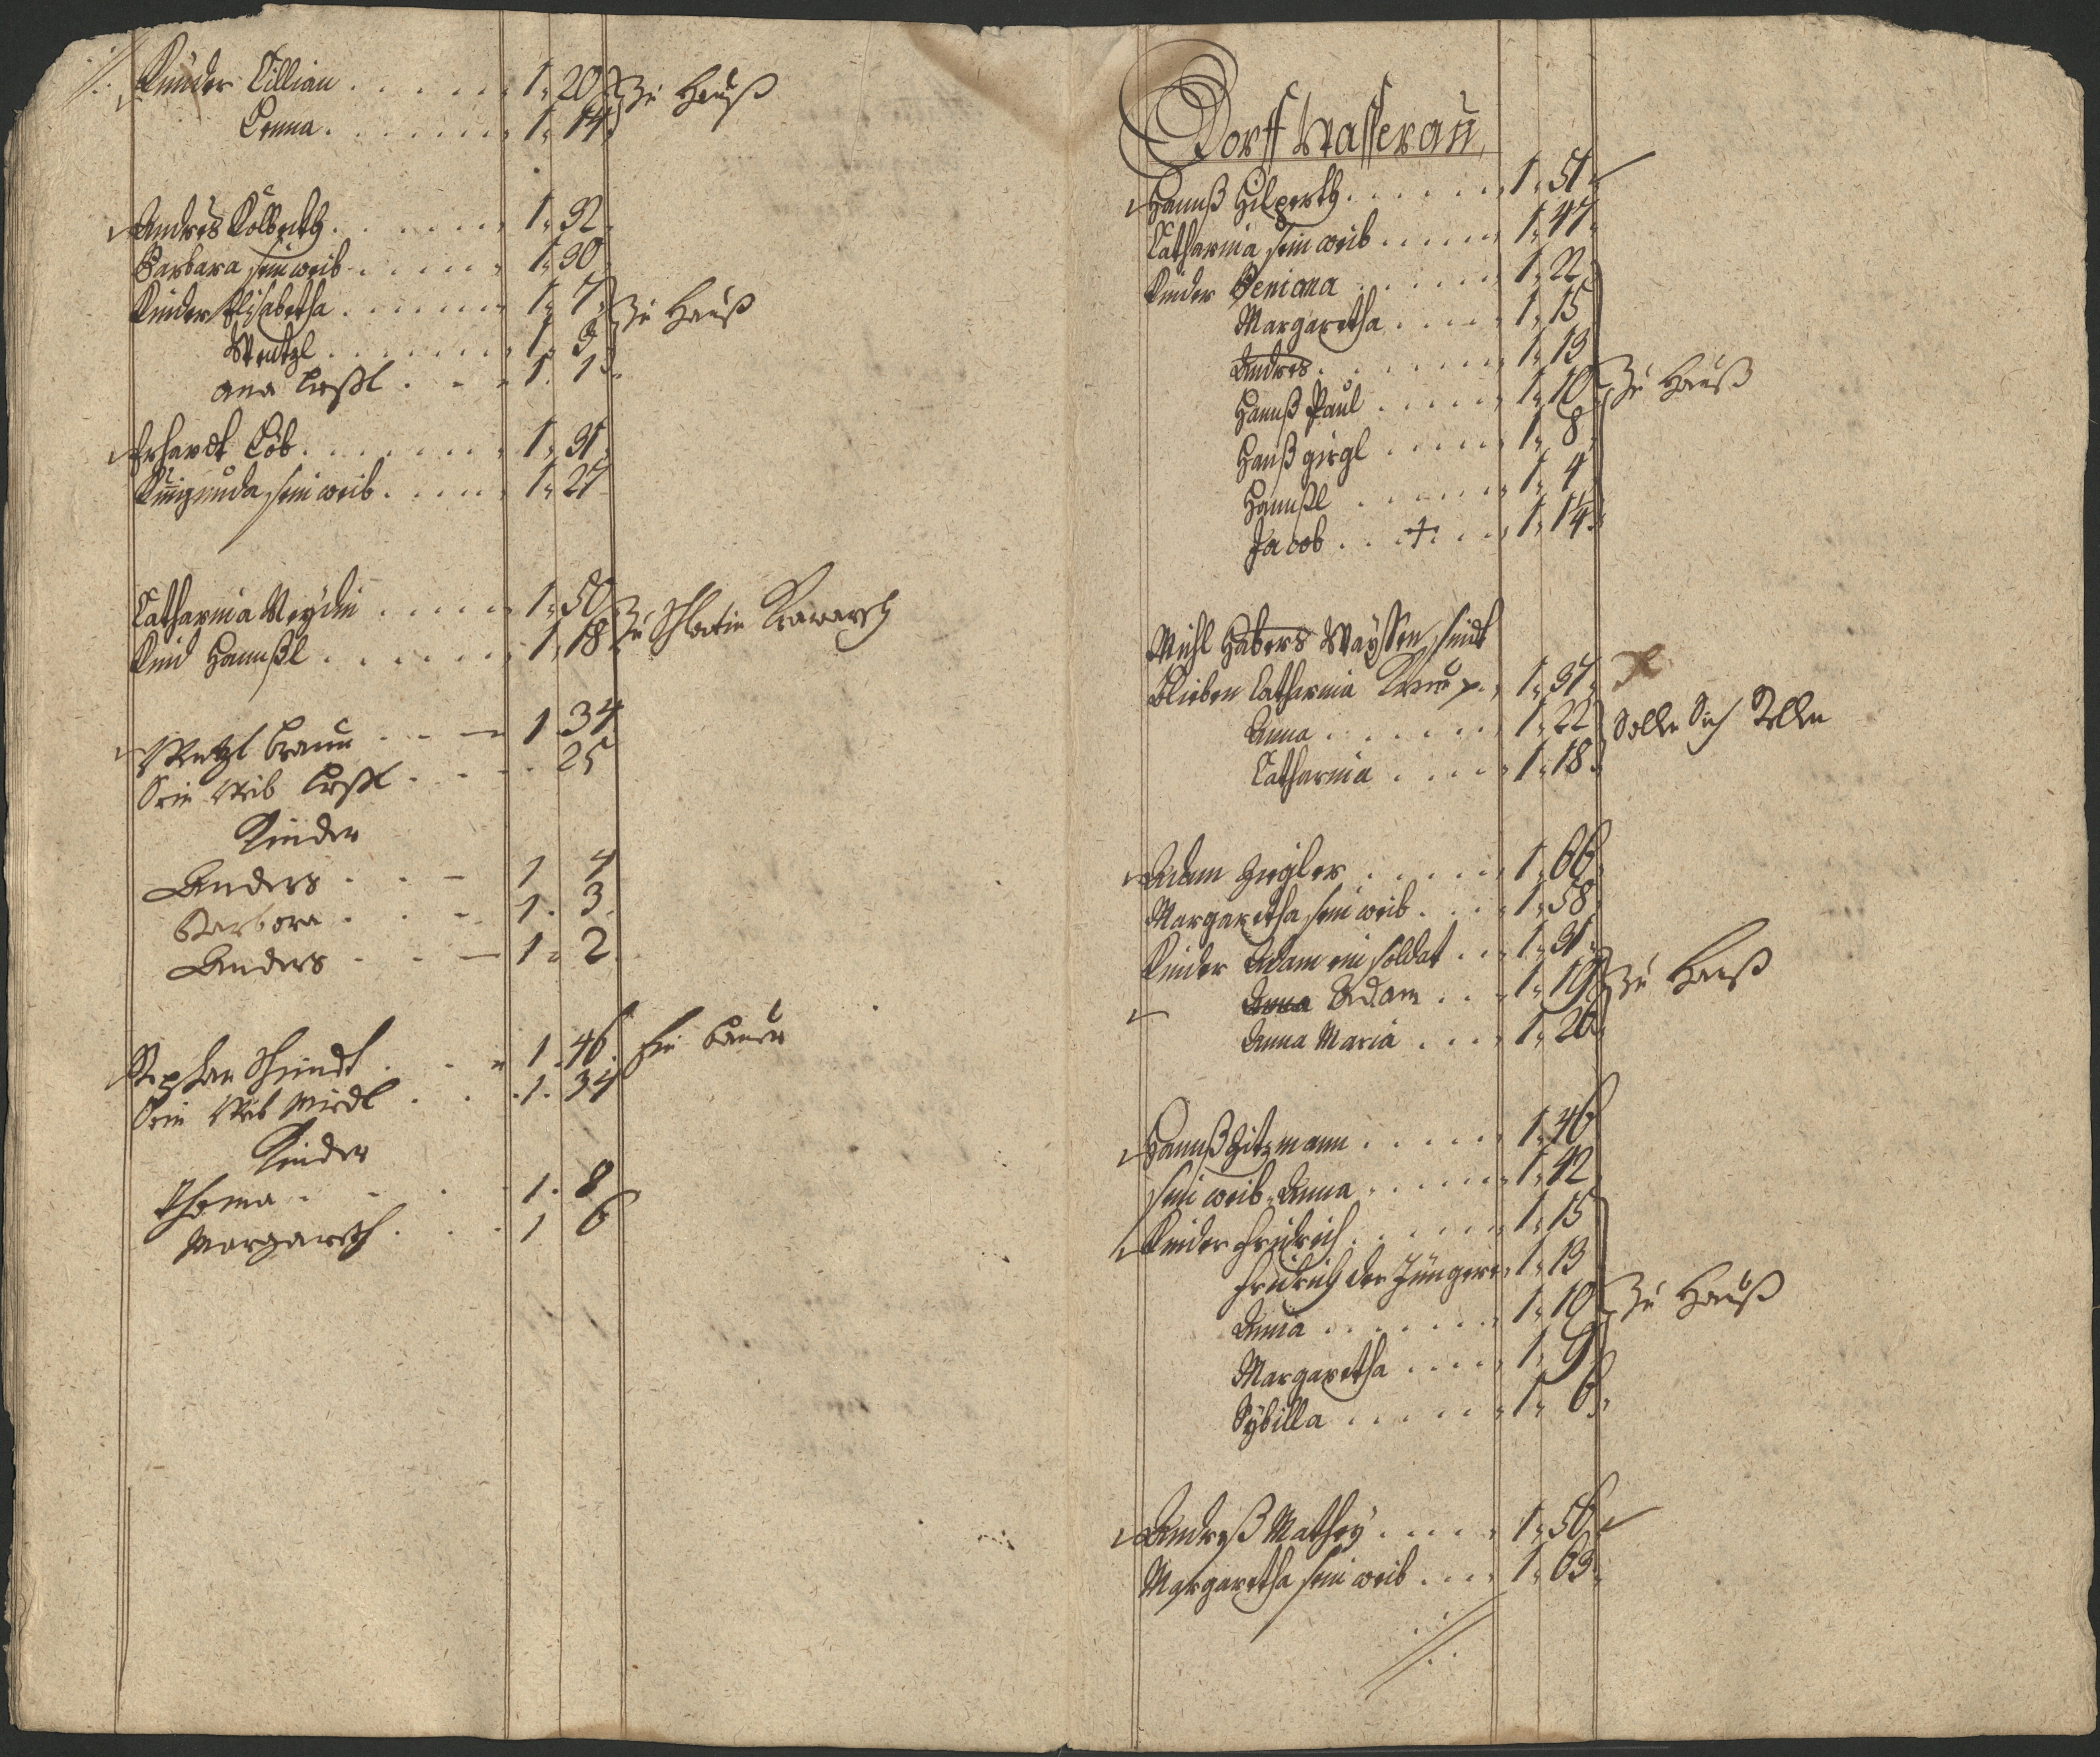 Kinder Killian . . . . . . 1. 20 zu Hauß
Enna . . . . . . 1. 14
Andres Kolbeckh . . . . . . 1. 32
Barbara sein weib . . . . . 1. 30
Kinder Elisabetha . . . . . . 1. 7 zu Hauß
Wentzl . . . . . . 1. 3
ana . . . 1. 1
Erhardt Löb . . . . . . 1. 31
Kunigunda sein weib . . . . . 1. 27
Catharina . . . . . 1. 50
Kind Hannßl . . . . . . 1. 18 zu
Wentzl Braun . . . 1 34
Sein Weib . . . . 25
Kinder
Anders . . . 1 4
Barbora . . . 1. 3
Anders . . . 1. 2
Stephan Schmidt . . . 1. 46. ein bauer
Sein Weib . . . 1. 34
Kinder
Thoma . . . . 1. 8
Margareth . . . 1 6
Dorff Wasserau
Hannß Hilperth . . . . . . 1. 51
Catharina sein weib . . . . . 1. 47
Kinder . . . . . . 1. 22
Margaretha . . . . . 1. 15
Andres . . . . . . 1. 13
Hannß Paul . . . . . 1. 10 zu Hauß
Hanß girgl . . . . . 1. 8
Hannßl . . . . . . 1. 4
Jacob . . + . . . 1. 14
Michl Habers Wayssen, seindt
blieben Catharina . 1. 37
Anna . . . . . . 1. 22 Solle Sich
Catharina . . . . . 1. 18
Adam Zigler . . . . . 1. 66
Margaretha sein weib . . . . 1. 58
Kinder Adam ein soldat . . . 1. 31
Anna Adam . . . 1. 19 zu Hauß
Anna Maria . . . . 1. 20
Hannß Zitzmann . . . . . 1. 46
sein weib Anna . . . . . . 1. 42
Kinder Fridrich . . . . . . 1. 15
Fridrich der Jüngere 1. 13
Anna . . . . . . . 1. 10 zu Hauß
Margaretha . . . . . 1. 9
Sybilla . . . . . . 1. 6
Andreß Mathey . . . . . 1. 56
Margaretha sein weib . . . . 1. 63